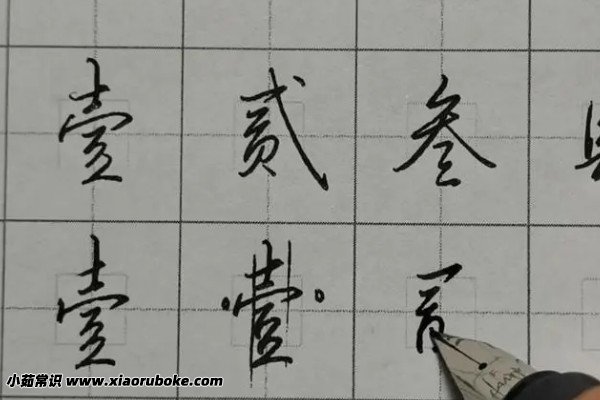 壹 贰 叁
壹 壹
小茹常识 www.xiaoruboke.com